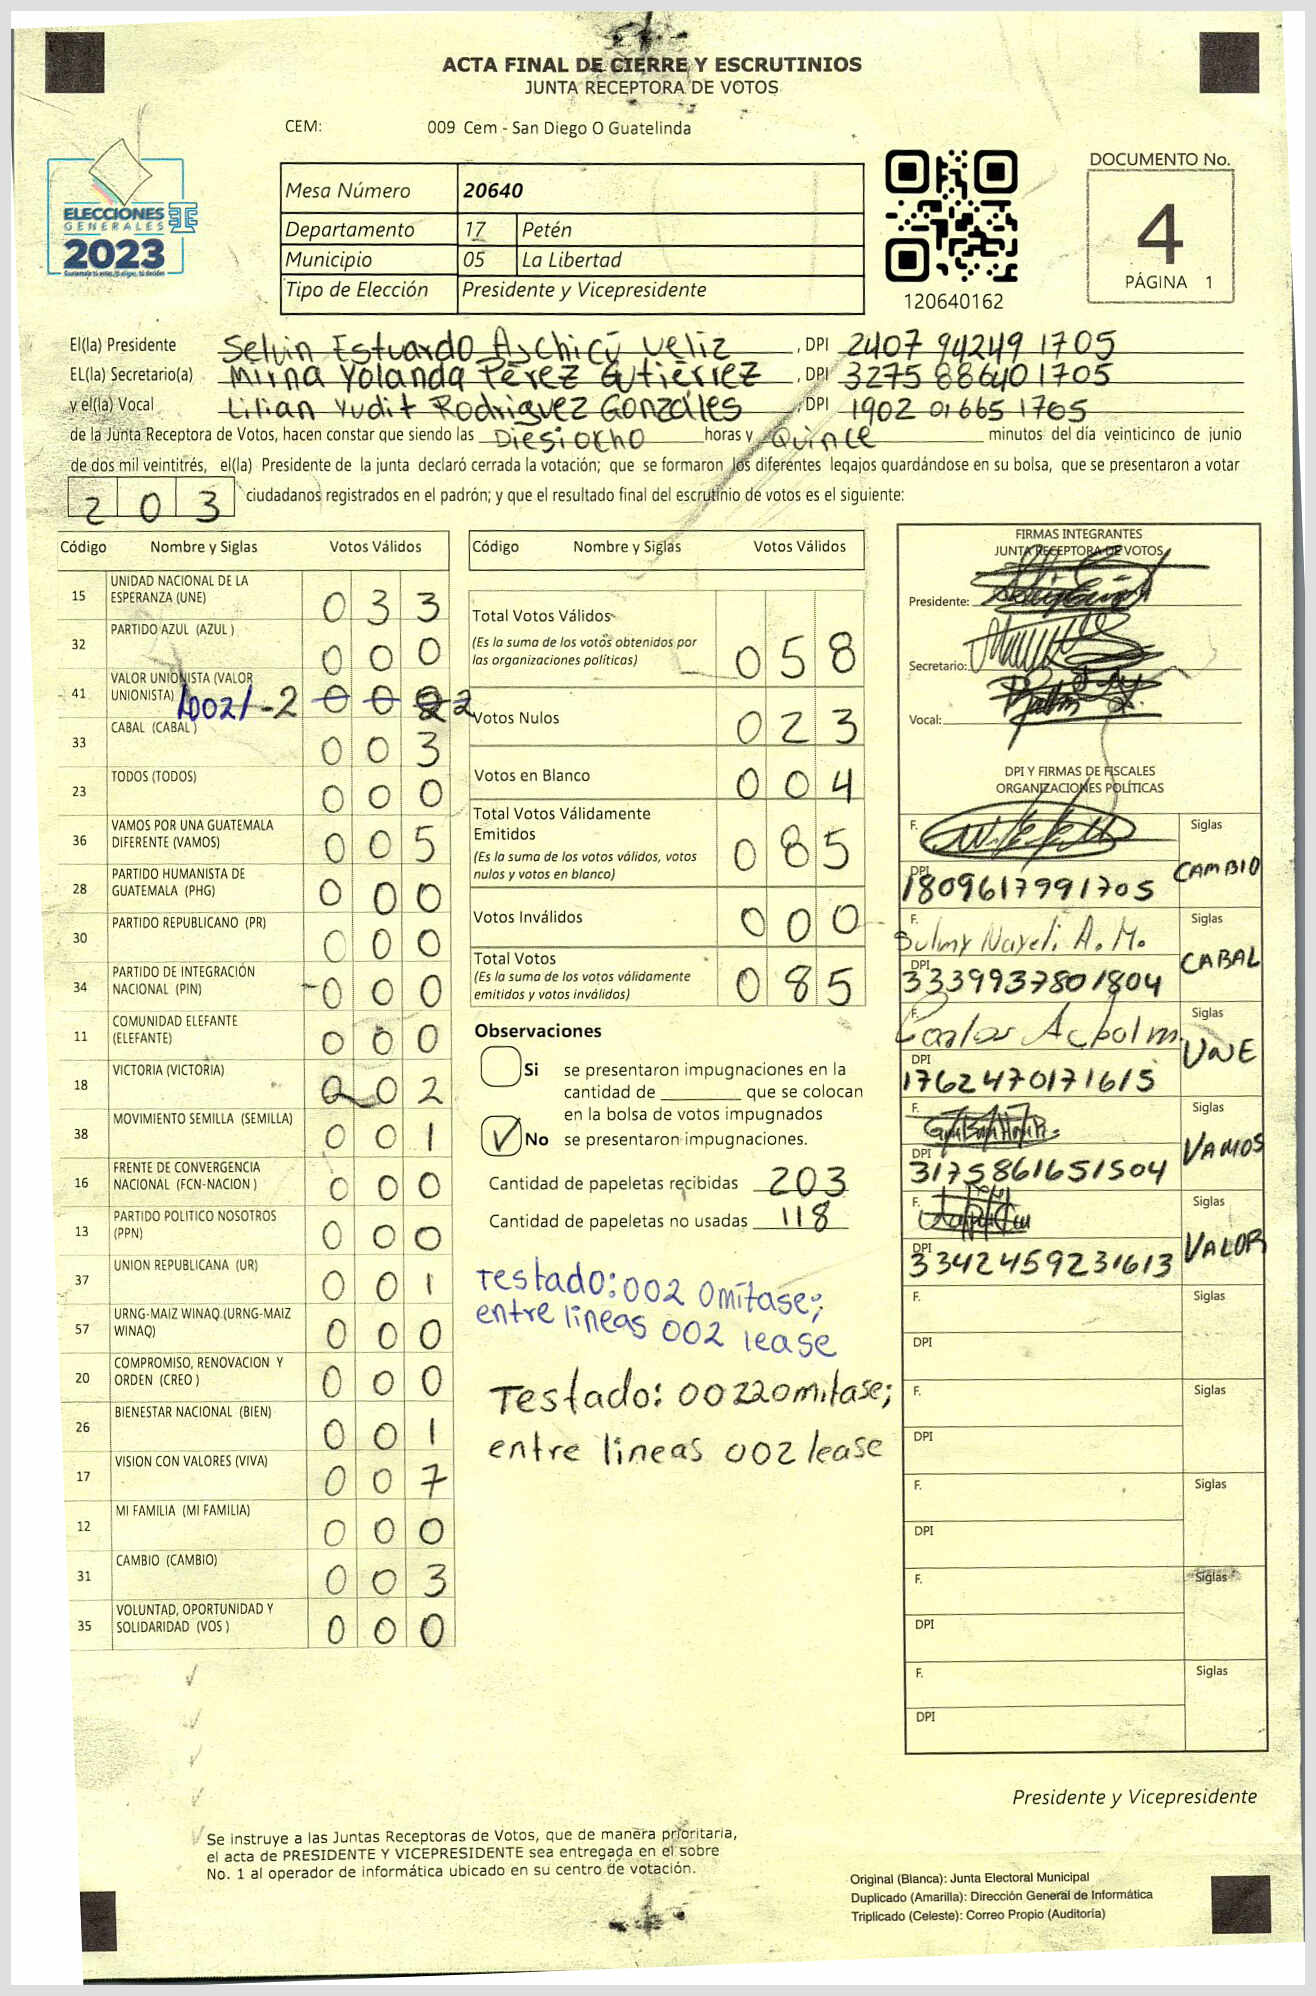 ACTA FINAL DE CIERRE Y ESCRUTINIOS
JUNTA RECEPTORA DE VOTOS
CEM: 009 Cem - San Diego O Guatelinda
ELECCIONES
GENERALES
2023
Mesa Número 20640
Departamento 17 Petén
Municipio 05 La Libertad
Tipo de Elección Presidente y Vicepresidente
120640162
DOCUMENTO No.
4
PÁGINA 1
El(la) Presidente Selvin Estuardo Aschicú Veliz, DPI 2407 94249 1705
EL(la) Secretario(a) Mirna Yolanda Pérez Gutiérrez, DPI 3275 88640 1705
y el(la) Vocal Lilian Yudit Rodriguez Gonzáles, DPI 1902 01665 1705
de la Junta Receptora de Votos, hacen constar que siendo las Diesiocho horas y Quince minutos del día veinticinco de junio
de dos mil veintitrés, el(la) Presidente de la junta declaró cerrada la votación; que se formaron los diferentes legajos guardándose en su bolsa, que se presentaron a votar
203 ciudadanos registrados en el padrón; y que el resultado final del escrutinio de votos es el siguiente:
Código Nombre y Siglas Votos Válidos
15 UNIDAD NACIONAL DE LA ESPERANZA (UNE) 033
32 PARTIDO AZUL (AZUL ) 000
41 VALOR UNIONISTA (VALOR UNIONISTA) /002/ -2 0 0 2 2
33 CABAL (CABAL ) 003
23 TODOS (TODOS) 000
36 VAMOS POR UNA GUATEMALA DIFERENTE (VAMOS) 005
28 PARTIDO HUMANISTA DE GUATEMALA (PHG) 000
30 PARTIDO REPUBLICANO (PR) 000
34 PARTIDO DE INTEGRACIÓN NACIONAL (PIN) 000
11 COMUNIDAD ELEFANTE (ELEFANTE) 000
18 VICTORIA (VICTORIA) 002
38 MOVIMIENTO SEMILLA (SEMILLA) 001
16 FRENTE DE CONVERGENCIA NACIONAL (FCN-NACION ) 000
13 PARTIDO POLITICO NOSOTROS (PPN) 000
37 UNION REPUBLICANA (UR) 001
57 URNG-MAIZ WINAQ (URNG-MAIZ WINAQ) 000
20 COMPROMISO, RENOVACION Y ORDEN (CREO ) 000
26 BIENESTAR NACIONAL (BIEN) 001
17 VISION CON VALORES (VIVA) 007
12 MI FAMILIA (MI FAMILIA) 000
31 CAMBIO (CAMBIO) 003
35 VOLUNTAD, OPORTUNIDAD Y SOLIDARIDAD (VOS ) 000
Código Nombre y Siglas Votos Válidos
Total Votos Válidos 058
(Es la suma de los votos obtenidos por
las organizaciones políticas)
Votos Nulos 023
Votos en Blanco 004
Total Votos Válidamente
Emitidos 085
(Es la suma de los votos válidos, votos
nulos y votos en blanco)
Votos Inválidos 000
Total Votos 085
(Es la suma de los votos válidamente
emitidos y votos inválidos)
Observaciones
Si se presentaron impugnaciones en la
cantidad de ________ que se colocan
en la bolsa de votos impugnados
No se presentaron impugnaciones.
Cantidad de papeletas recibidas 203
Cantidad de papeletas no usadas 118
Testado: 002 Omítase;
entre líneas 002 lease
Testado: 00220mitase;
entre lineas 002 lease
FIRMAS INTEGRANTES
JUNTA RECEPTORA DE VOTOS
Presidente:
Secretario:
Vocal:
DPI Y FIRMAS DE FISCALES
ORGANIZACIONES POLÍTICAS
F. Siglas
DPI 1809617991705 CAMBIO
F. Sulmy Nayeli A. M. Siglas
DPI 3339937801804 CABAL
F. Carlos Siglas
DPI 1762470171615 UNE
F. Siglas
DPI 3175861651504 VAMOS
F. Siglas
DPI 3342459231613 VALOR
F. Siglas
DPI
F. Siglas
DPI
F. Siglas
DPI
F. Siglas
DPI
F. Siglas
DPI
Presidente y Vicepresidente
Se instruye a las Juntas Receptoras de Votos, que de manera prioritaria,
el acta de PRESIDENTE Y VICEPRESIDENTE sea entregada en el sobre
No. 1 al operador de informática ubicado en su centro de votación.
Original (Blanca): Junta Electoral Municipal
Duplicado (Amarilla): Dirección General de Informática
Triplicado (Celeste): Correo Propio (Auditoría)